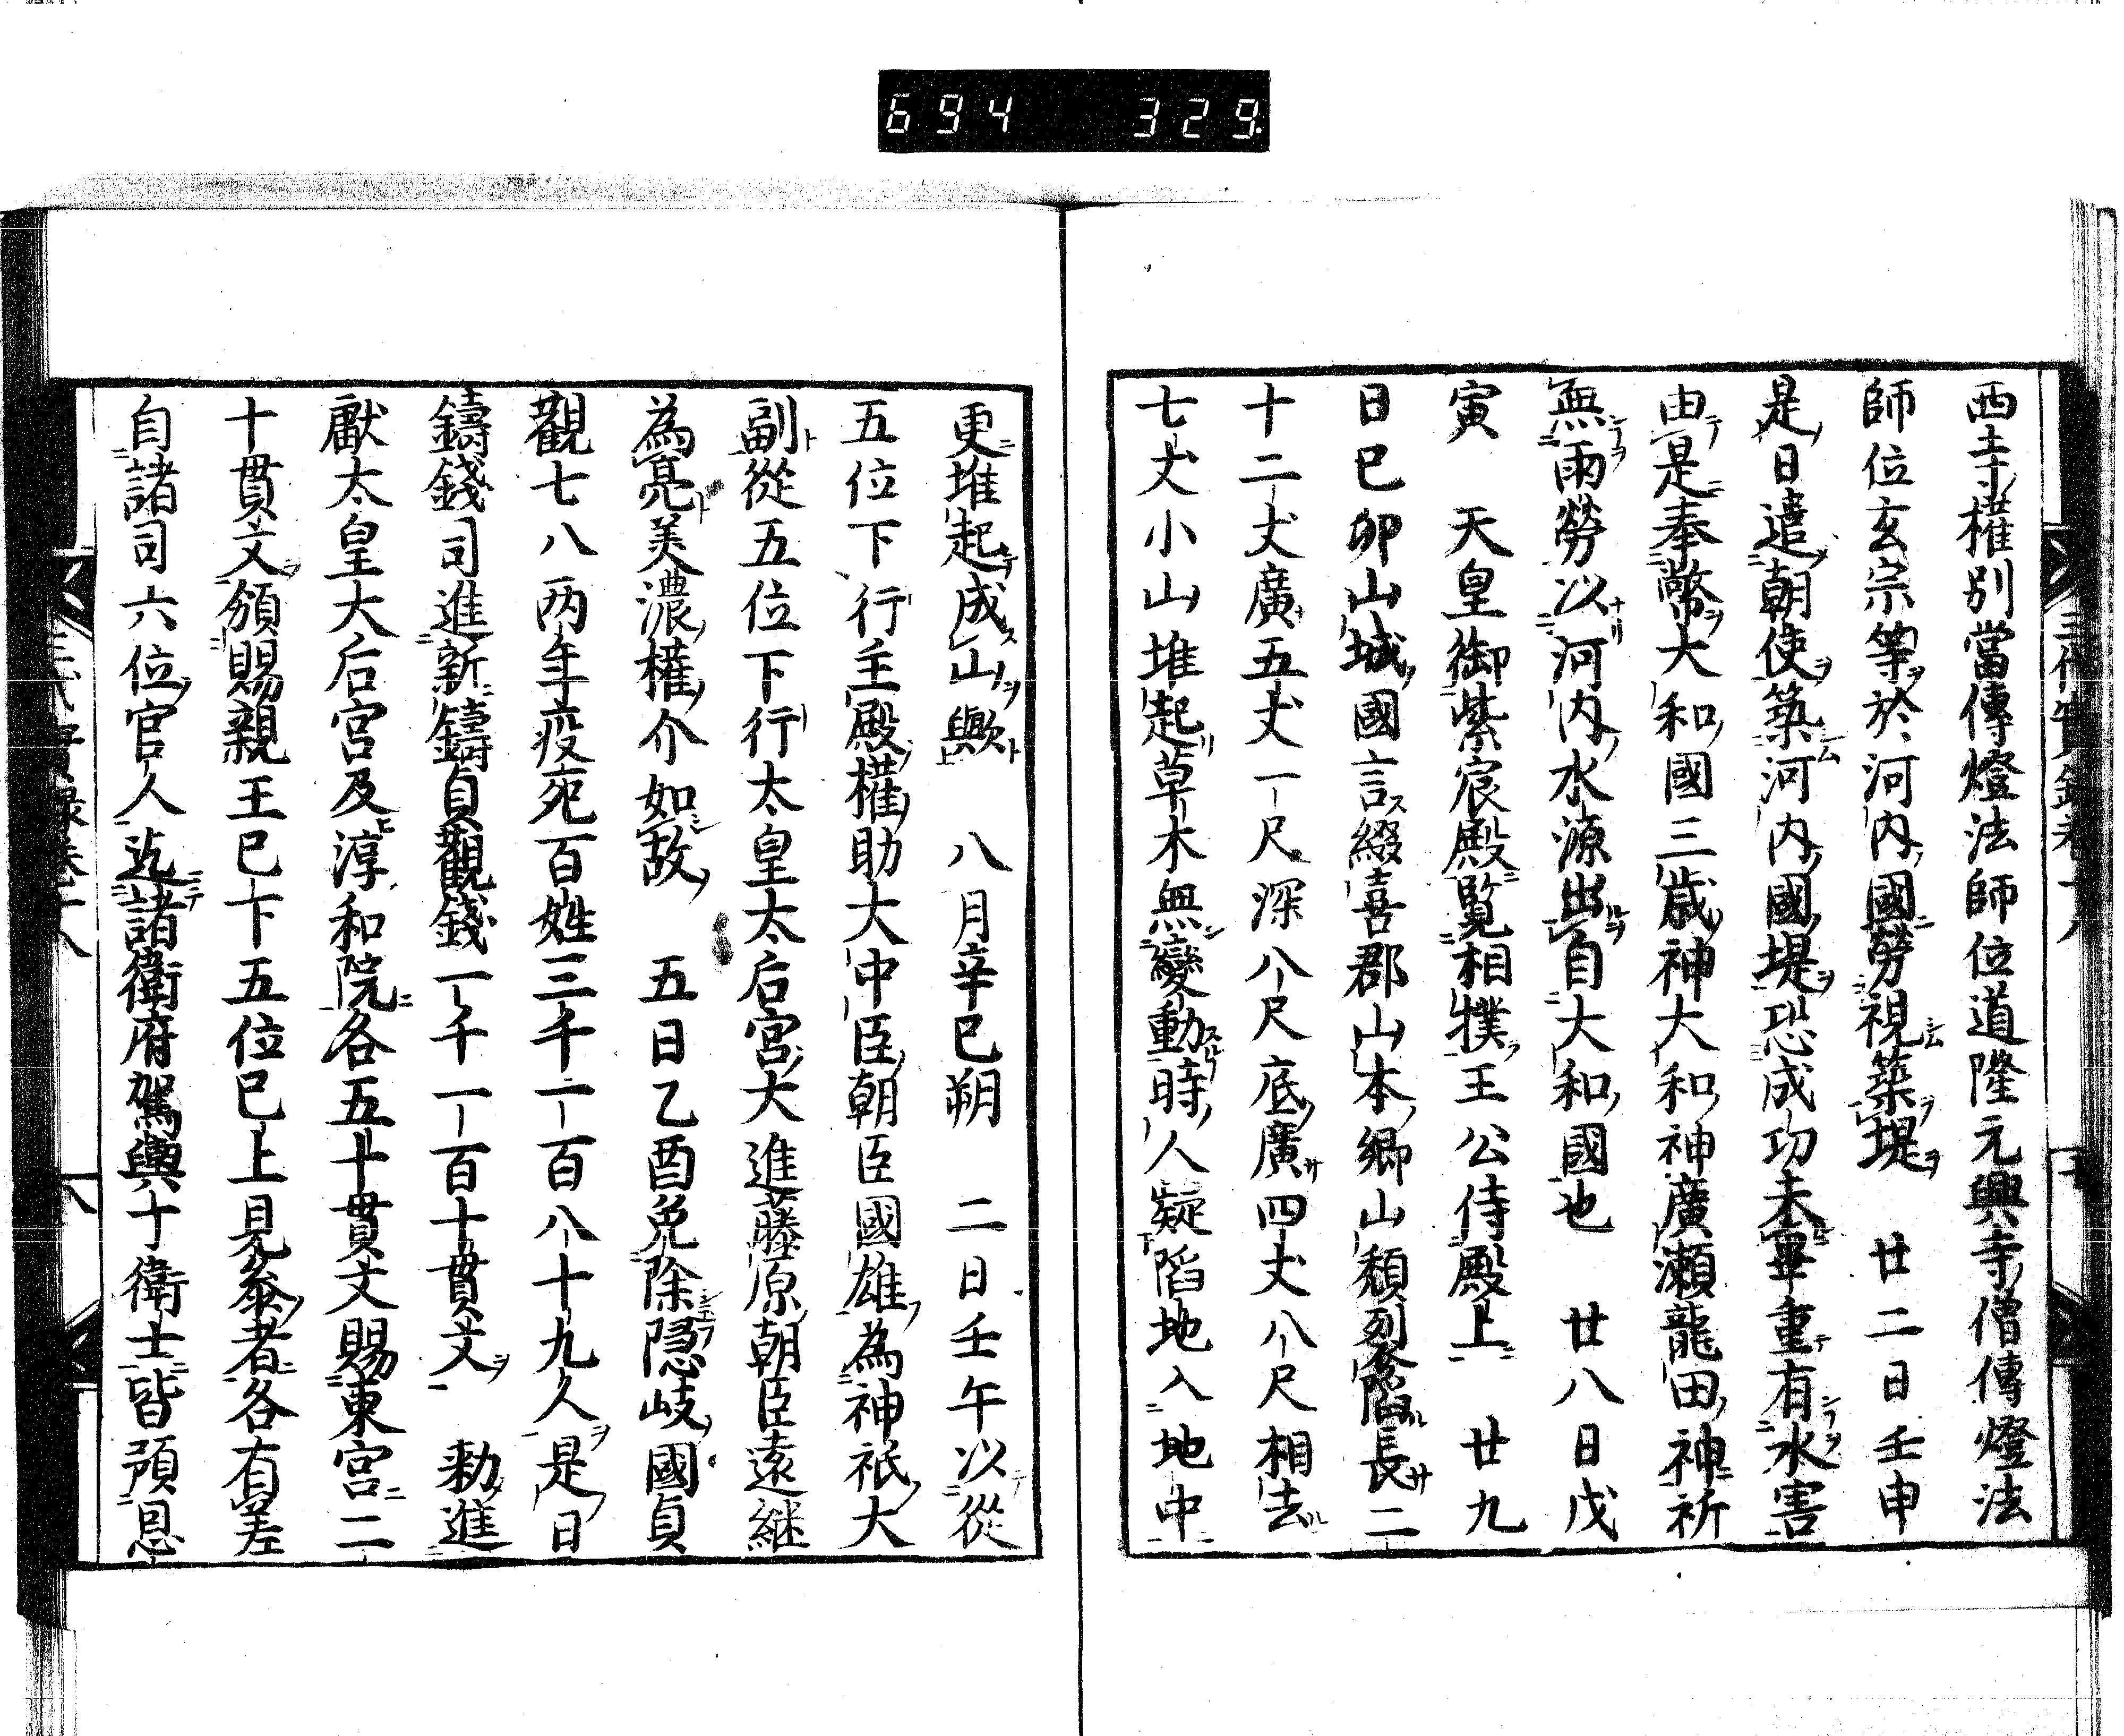 694 329
西寺權別當傳燈法師位道隆元興寺僧傳燈法
師位玄宗等於河内國勞視築堤　廿二日壬申
是日遣朝使築河内國堤恐成功未畢重有水害
由是奉幣大和國三歳神大和神廣瀬龍田神祈
無雨勞以河内水源出自大和國也　廿八日戊
寅　天皇御紫宸殿覧相撲王公侍殿上　廿九
日巳卯山城國言綴喜郡山本郷山頽裂陷長二
十二丈廣五丈一尺深八尺底廣四丈八尺相去
七丈小山堆起草木無變動時人疑陷地入地中
更堆起成山歟　八月辛巳朔　二日壬午以從
五位下行主殿權助大中臣朝臣國雄為神祇大
副從五位下行太皇太后宮大進藤原朝臣遠継
為亮美濃權介如故　五日乙酉免除隠岐國貞
觀七八两年疫死百姓三千一百八十九人是日
鑄錢司進新鑄貞觀錢一千一百十貫文　勅進
獻太皇大后宮及淳和院各五十貫文賜東宮二
十貫文頒賜親王巳下五位巳上見参者各有差
自諸司六位官人迄諸衛府駕輿丁衛士皆預恩